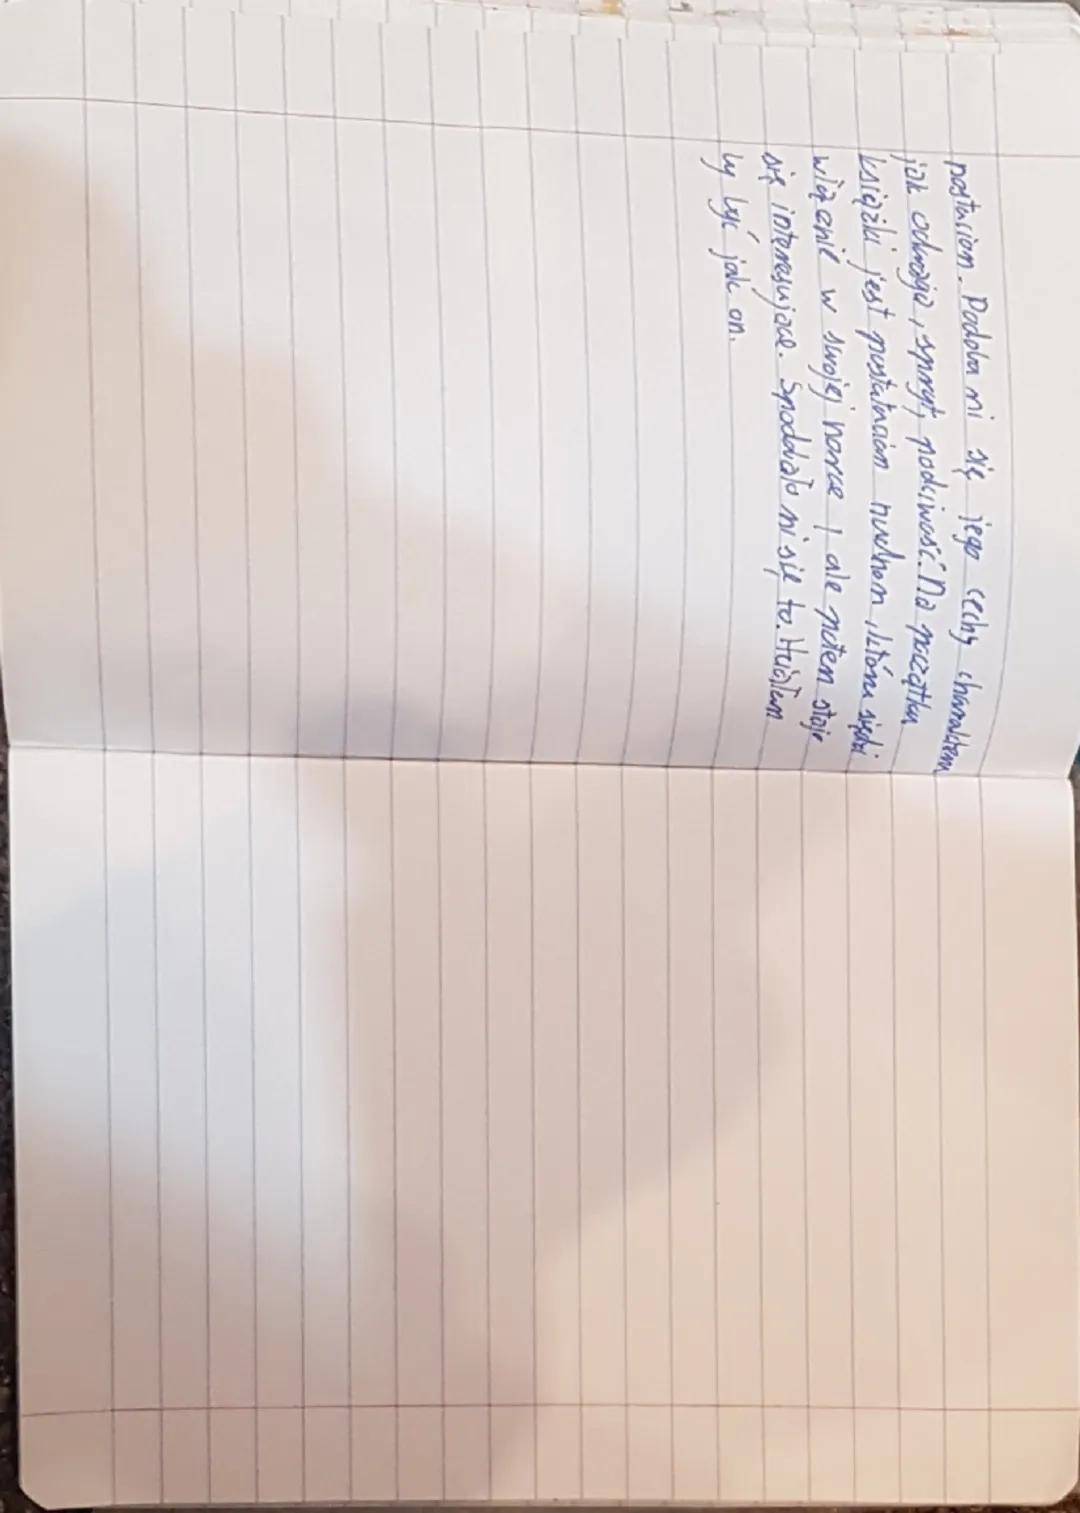 postaciom. Podoba mi się jego cechy charakteru
jak odwaga, spryt, poczciwość. Na początku
książki jest postaciom ruchom, która siedzi
wiązanie w swojej norce, ale potem staje
się interesujące. Spodobało mi się to. Hciałam
by być jak on.